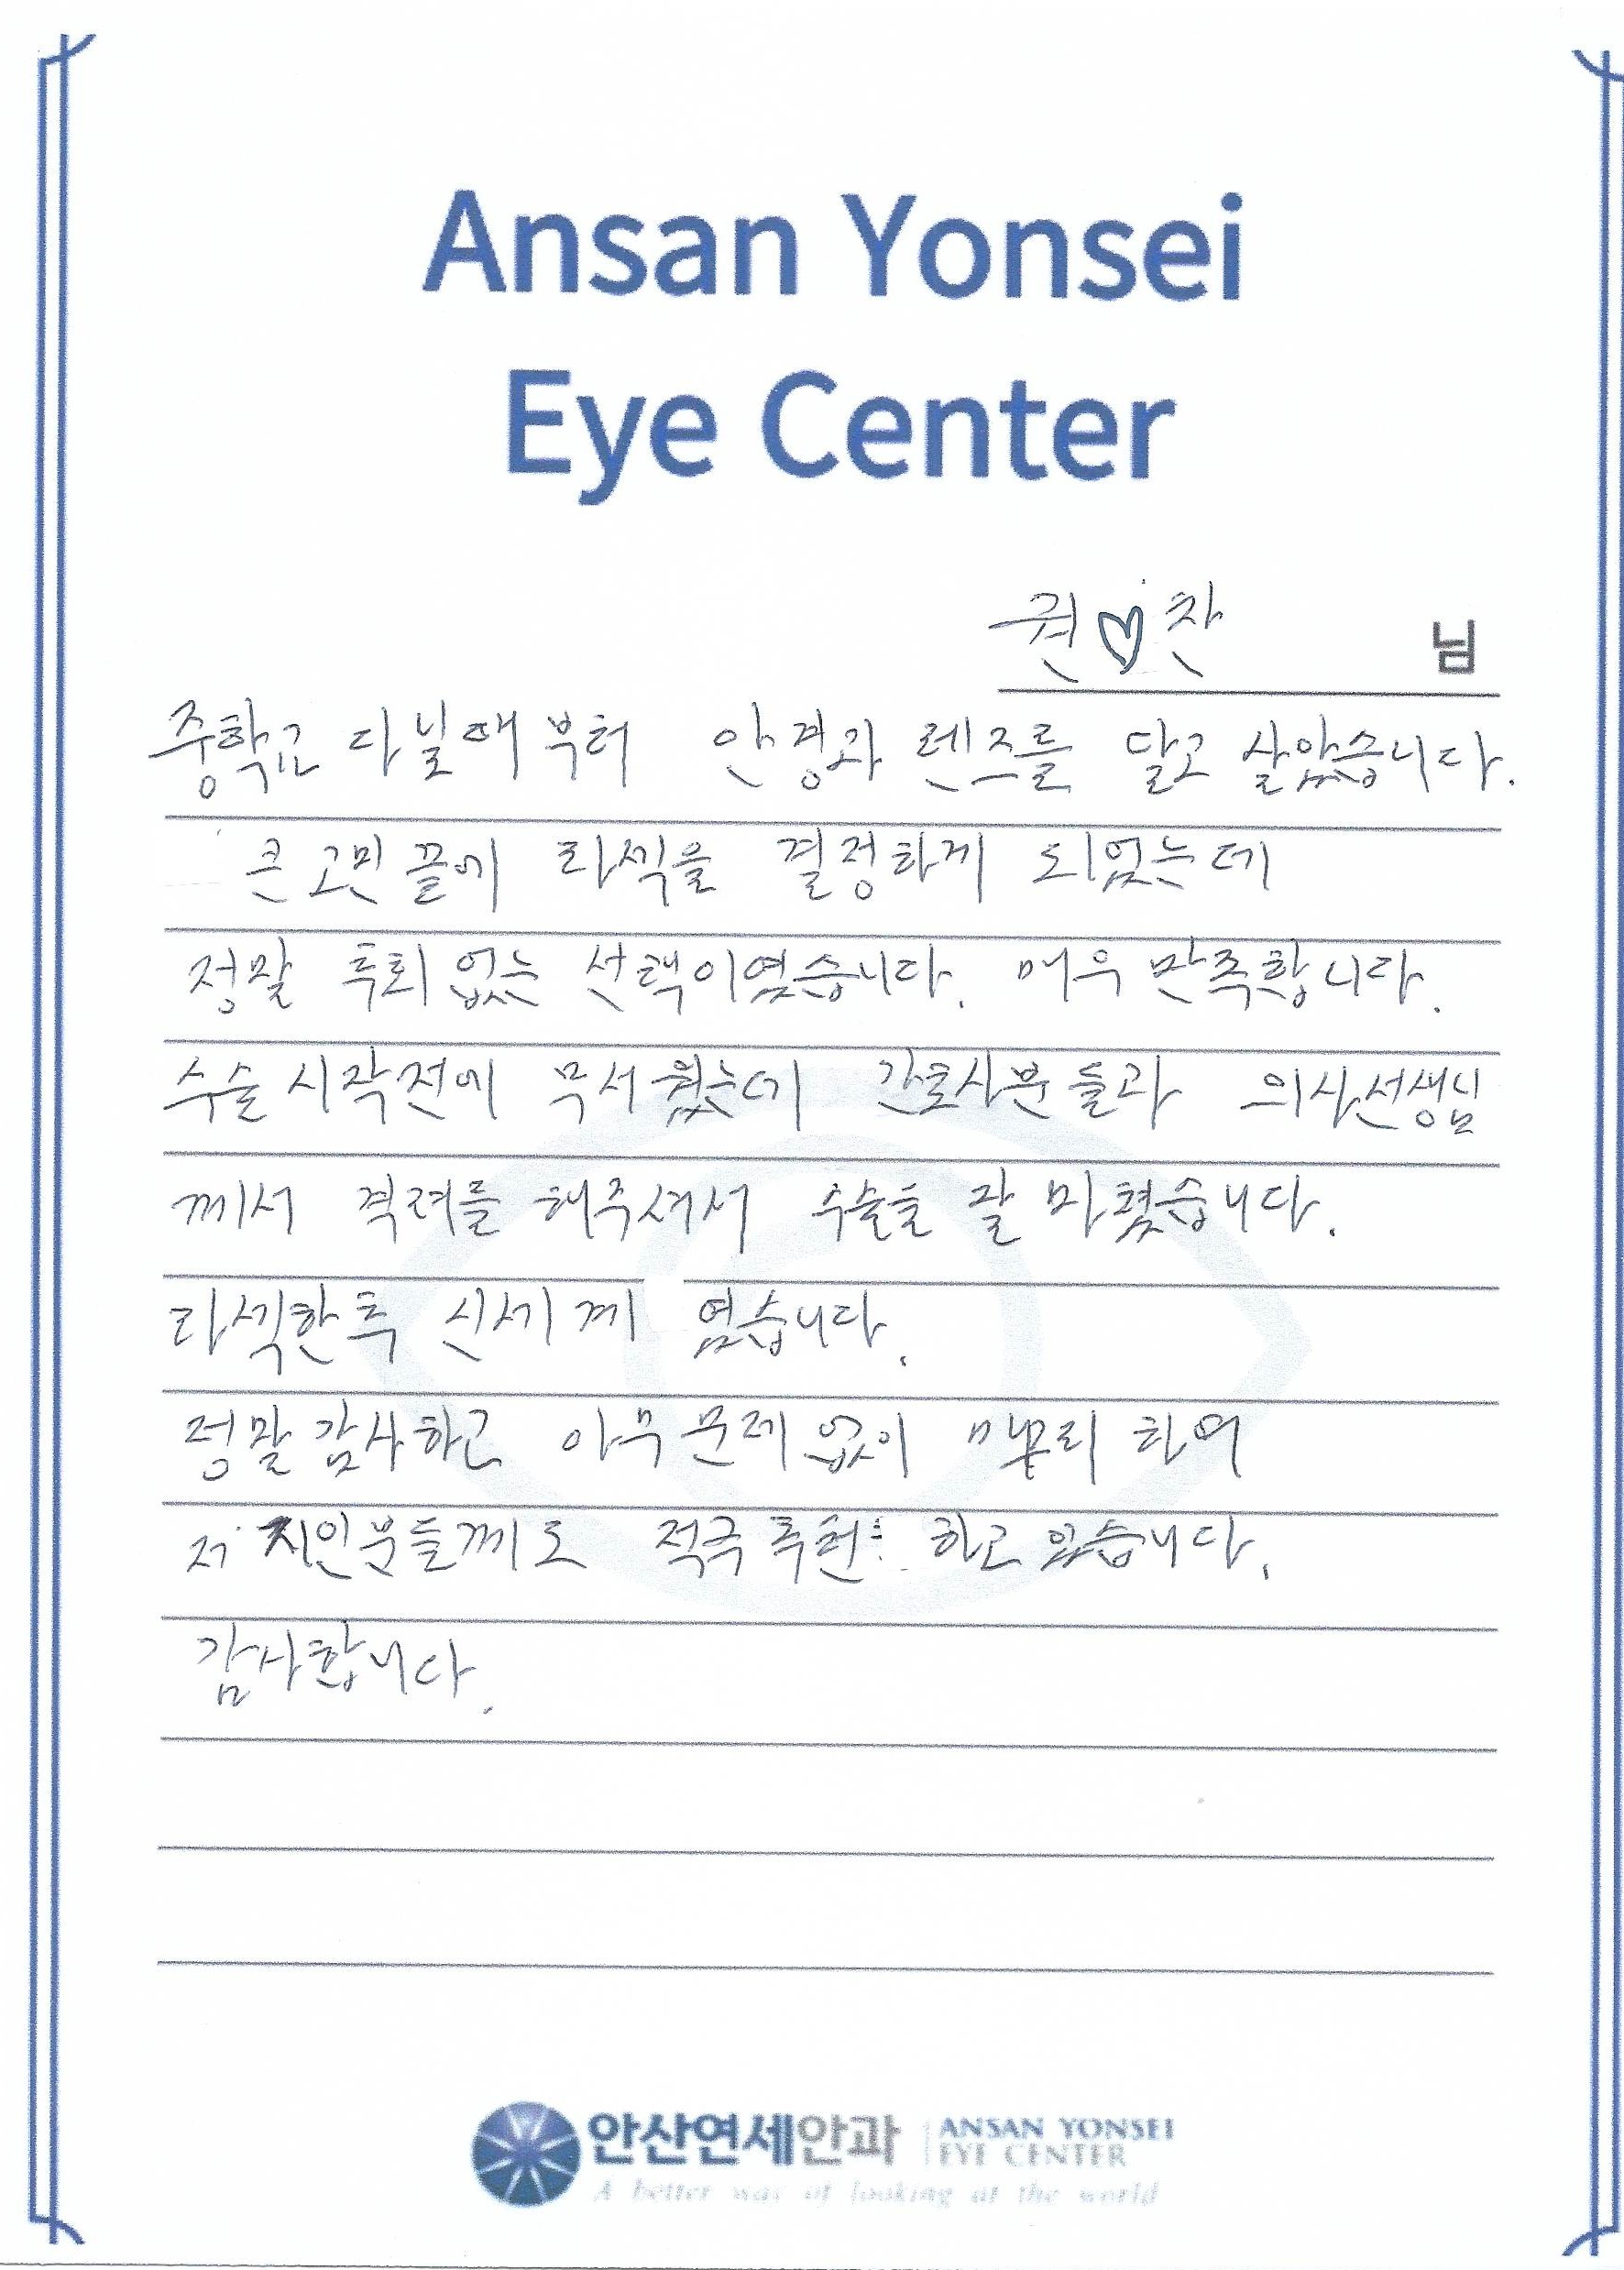 Ansan Yonsei
Eye Center
권♡찬 님
중학교 다닐때부터 안경과 렌즈를 달고 살았습니다.
큰 고민 끝에 라섹을 결정하게 되었는데
정말 후회 없는 선택이였습니다. 매우 만족합니다.
수술 시작전에 무서웠는데 간호사분들과 의사선생님
께서 격려를 해주셔서 수술을 잘 마쳤습니다.
라섹한 후 신세계 였습니다.
정말 감사하고 아무 문제 없이 마무리 하여
저 지인분들께도 적극 추천 하고 있습니다.
감사합니다.
안산연세안과 ANSAN YONSEI
EYE CENTER
A better way of looking at the world